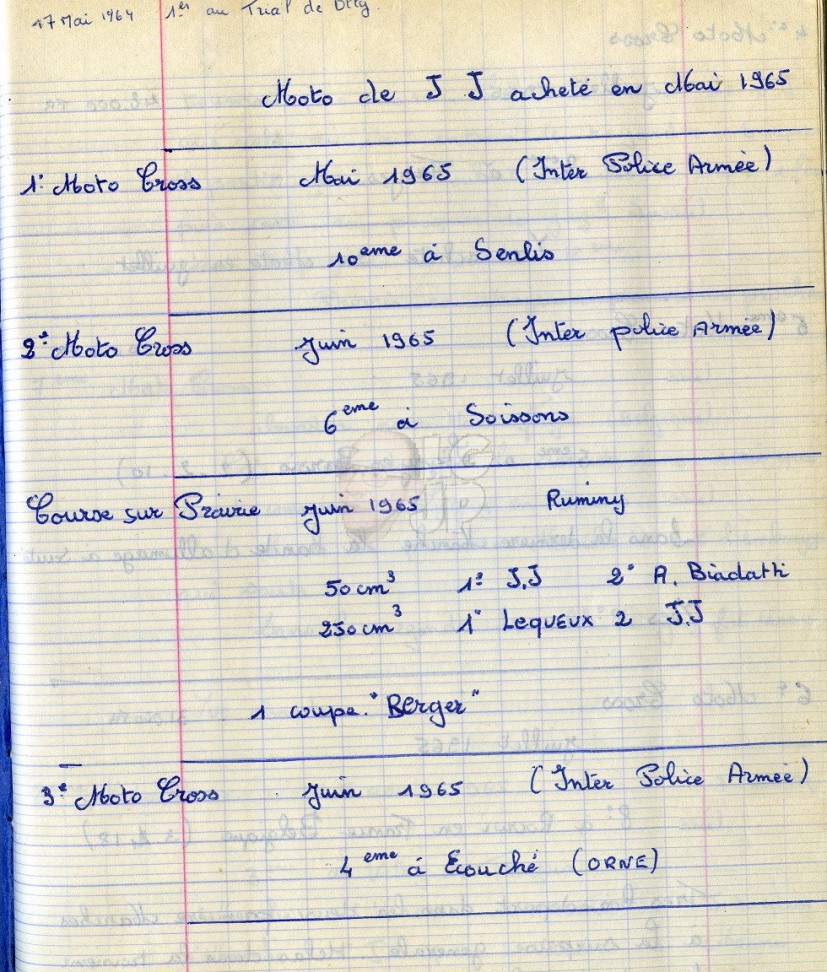 17 Mai 1964 1er au Trial de
Moto de J J acheté en Mai 1965
1° Moto Cross Mai 1965 (Inter Police Armée)
10eme à Senlis
2° Moto Cross Juin 1965 (Inter police Armée)
6eme à Soissons
Course sur Prairie Juin 1965 Ruminy
50 cm3 1° J.J 2° A. Biadatti
250 cm3 1° Lequeux 2 J.J
1 coupe "Berger"
3° Moto Cross Juin 1965 (Inter Police Armée)
4eme à Ecouché (ORNE)